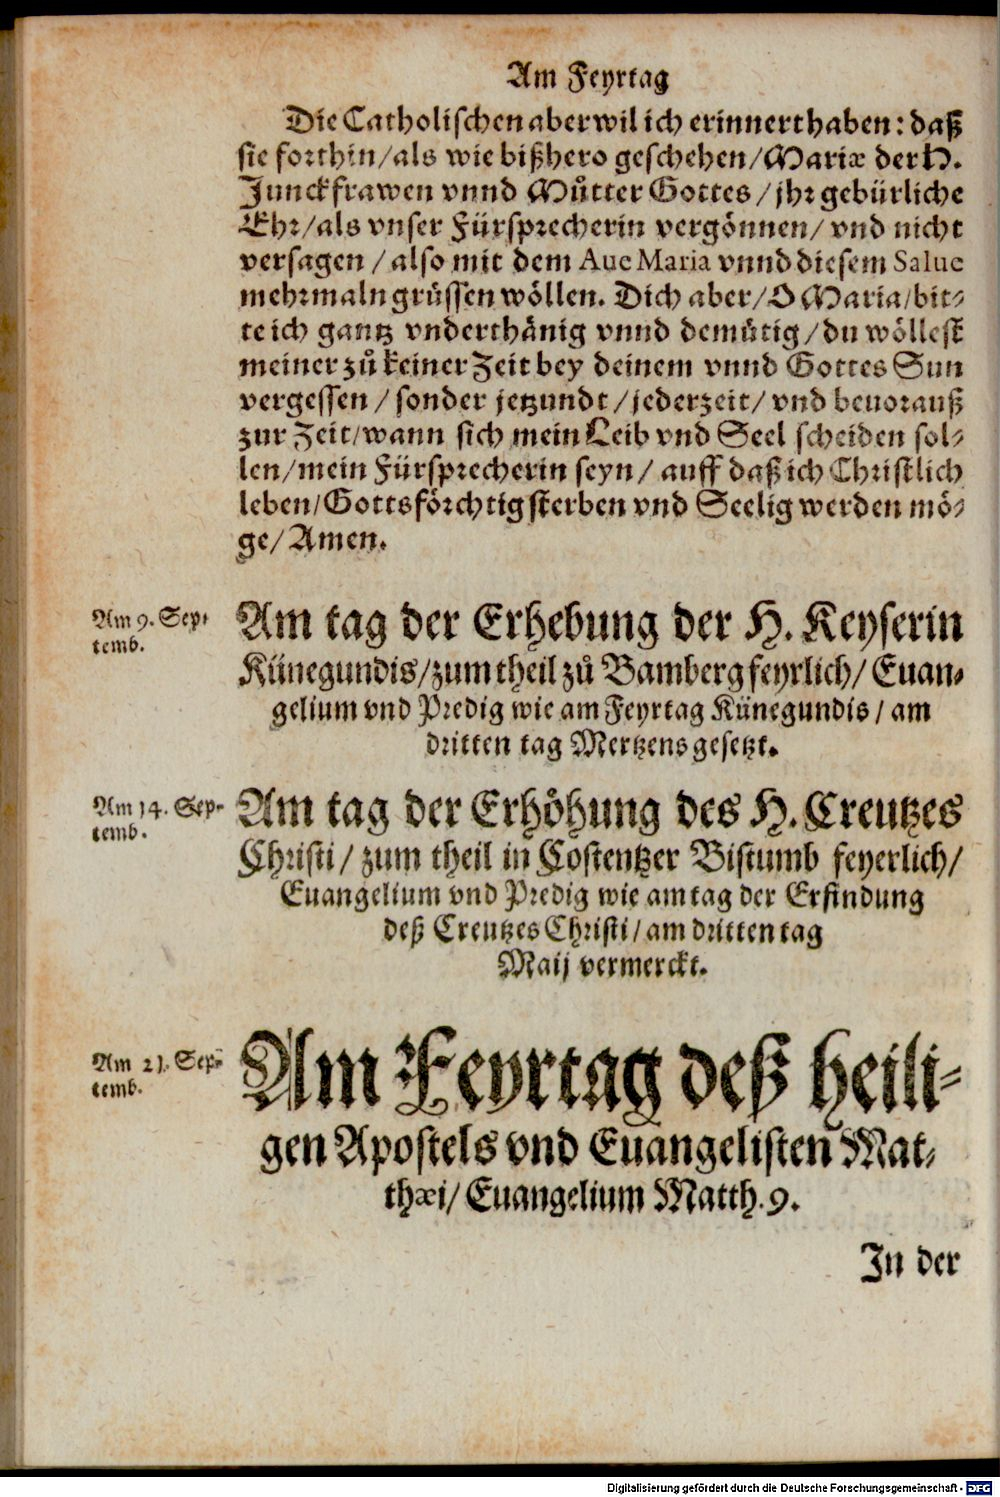 Am Feyrtag
Die Catholischen aber wil ich erinnert haben: daß
sie forthin/als wie bißhero geschehen/Mariæ der H.
Junckfrawen vnnd Můtter Gottes/jhr gebürliche
Ehr/als vnser Fürsprecherin vergönnen/vnd nicht
versagen/also mit dem Aue Maria vnnd diesem Salue
mehrmaln grüssen wöllen. Dich aber/O Maria/bit-
te ich gantz vnderthänig vnnd demütig/du wöllest
meiner zů keiner Zeit bey deinem vnnd Gottes Sun
vergessen/sonder jetzundt/jederzeit/vnd beuorauß
zur Zeit/wann sich mein Leib vnd Seel scheiden sol-
len/mein Fürsprecherin seyn/auff daß ich Christlich
leben/Gottsförchtig sterben vnd Seelig werden mö-
ge/Amen.
Am 9. Sep-
temb.
Am tag der Erhebung der H. Keyserin
Künegundis/zum theil zů Bamberg feyrlich/Euan-
gelium vnd Predig wie am Feyrtag Künegundis/am
dritten tag Mertzens gesetzt.
Am 14. Sep-
temb.
Am tag der Erhöhung des H. Creutzes
Christi/zum theil in Costentzer Bistumb feyerlich/
Euangelium vnd Predig wie am tag der Erfindung
deß Creutzes Christi/am dritten tag
Maij vermerckt.
Am 21. Sep-
temb.
Am Feyrtag deß heili-
gen Apostels vnd Euangelisten Mat-
thæi/Euangelium Matth. 9.
In der
Digitalisierung gefördert durch die Deutsche Forschungsgemeinschaft - DFG